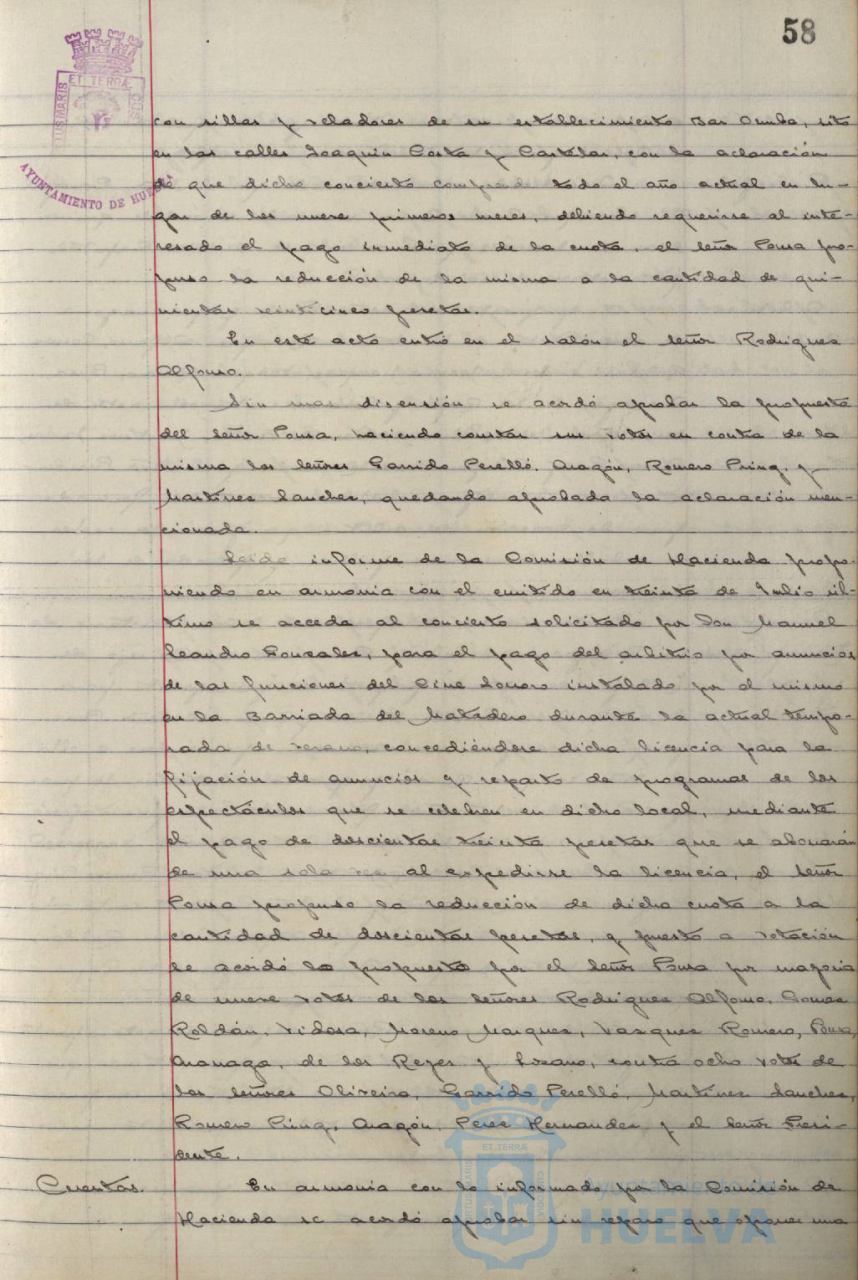 58
ET TERRÆ
AYUNTAMIENTO DE HUELVA
con sillas y veladores de su establecimiento Bar Onuba, sito
en las calles Joaquin Costa y Castelar, con la aclaración
de que dicho concierto comprende todo el año actual en lu-
gar de los nueve primeros meses, debiendo requerirse al inte-
resado el pago inmediato de la cuota, el señor Ponsa pro-
puso la reducción de la misma a la cantidad de qui-
nientas veinticinco pesetas.
En este acto entró en el salón el señor Rodriguez
Alfonso.
Sin mas discusión se acordó aprobar la propuesta
del señor Ponsa, haciendo constar sus votos en contra de la
misma los señores Garrido Perelló, Aragón, Romero Pring, y
Martinez Sanchez, quedando aprobada la aclaración men-
cionada.
Leido informe de la Comisión de Hacienda propo-
niendo en armonia con el emitido en treinta de Julio úl-
timo se acceda al concierto solicitado por Don Manuel
Leandro Gonzalez, para el pago del arbitrio por anuncios
de las funciones del Cine Sonoro instalado por el mismo
en la Barriada del Matadero durante la actual tempo-
rada de verano, concediéndose dicha licencia para la
fijación de anuncios y reparto de programas de los
espectáculos que se celebren en dicho local, mediante
el pago de doscientas treinta pesetas que se abonarán
de una sola vez al expedirse la licencia, el señor
Ponsa propuso la reducción de dicha cuota a la
cantidad de doscientas pesetas, y puesto a votación
se acordó lo propuesto por el señor Ponsa por mayoria
de nueve votos de los señores Rodriguez Alfonso, Gomez
Roldán, Vidosa, Moreno Marquez, Vazquez Romero, Ponsa,
Aranaga, de los Reyes y Lozano, contra ocho votos de
los señores Oliveira, Garrido Perelló, Martinez Sanchez,
Romero Pring, Aragón, Perez Hernandez y el señor Presi-
dente.
Cuentas. En armonia con lo informado por la Comisión de
Hacienda se acordó aprobar sin reparo que oponer una
ET TERRÆ
Ayuntamiento de
HUELVA